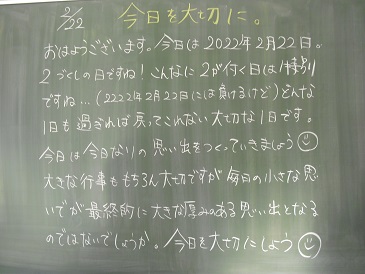 2/22 今日を大切に。
おはようございます。今日は2022年2月22日。
2づくしの日ですね！こんなに2が付く日は特別
ですね…(2222年2月22日には負けるけど)どんな
1日も過ぎれば戻ってこれない大切な1日です。
今日は今日なりの思い出をつくっていきましょう☺
大きな行事ももちろん大切ですが毎日の小さな思
いでが最終的に大きな厚みのある思い出となる
のではないでしょうか。今日を大切にしよう☺